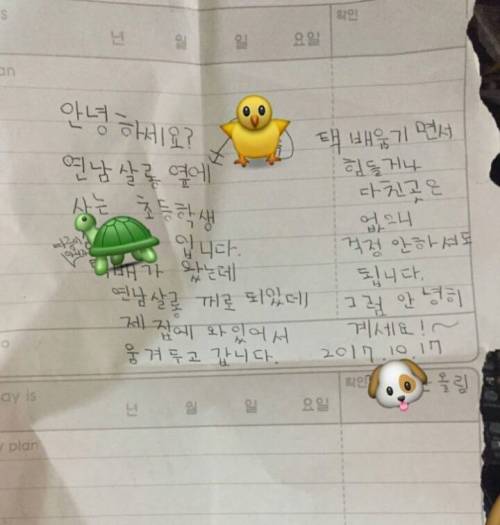 확인
년 월 일 요일
an
안녕하세요?
연남살롱 옆에
사는 초등학생
입니다.
배가 왔는데
연남살롱 꺼로 되있데
제 집에 와있어서
웅겨두고 갑니다.
택배움기면서
힘들거나
다친곳은
없으니
걱정 안하셔도
됩니다.
그럼 안녕히
계세요!~
2017.10.17
올림
ay is
년 월 일 요일
확인
plan